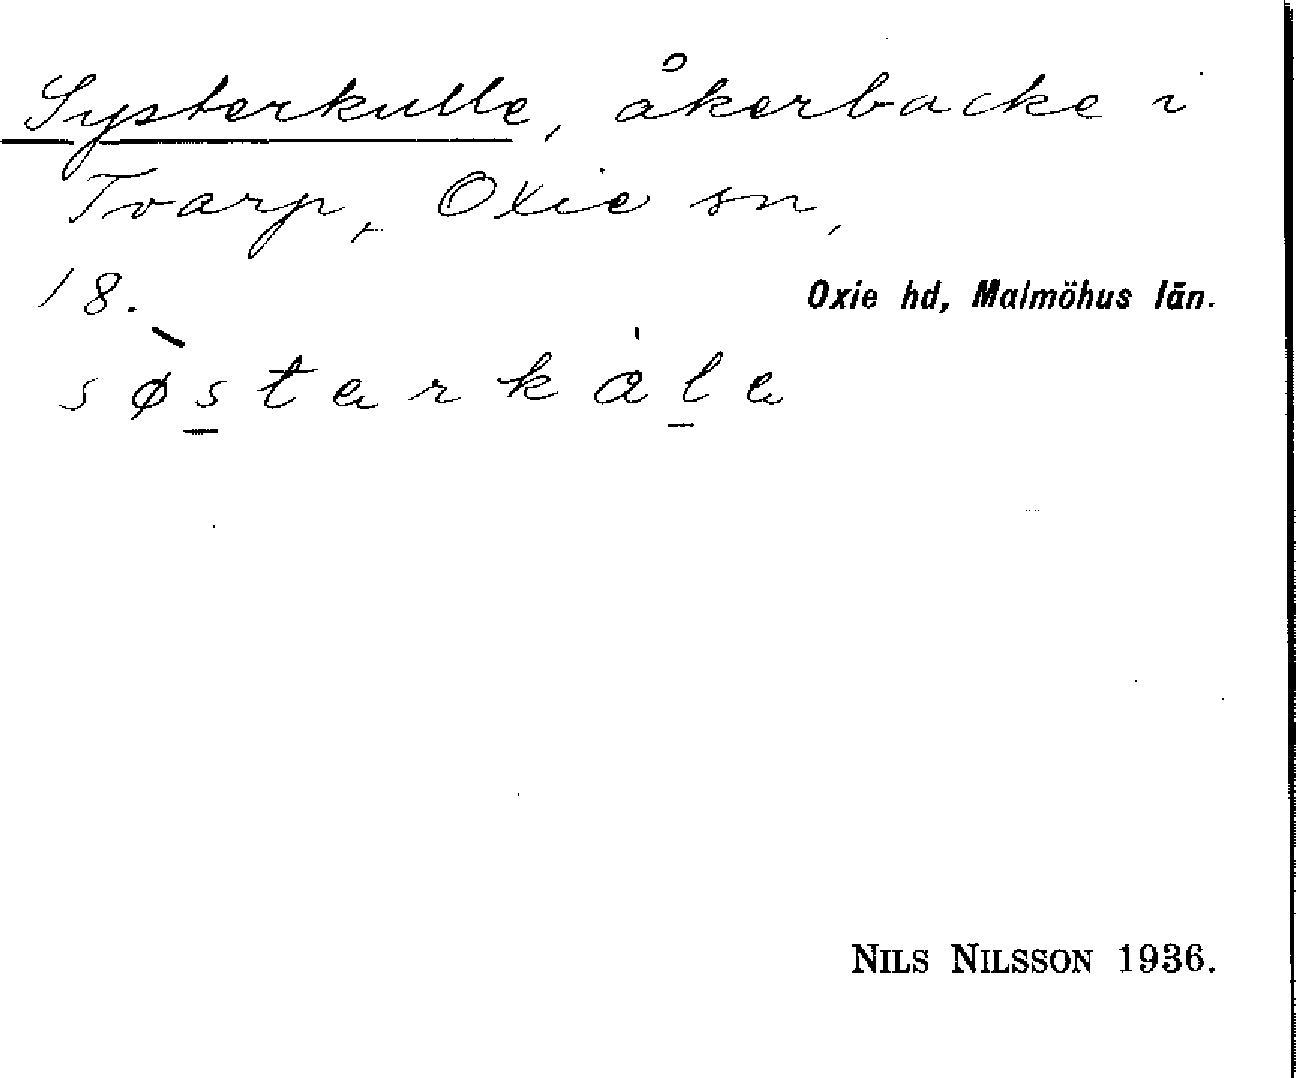 Systerkulle, åkerbacke i
Tvarp, Oxie sn,
18. Oxie hd, Malmöhus län.
sø̀s̲tərkȧl̲ə
NILS NILSSON 1936.